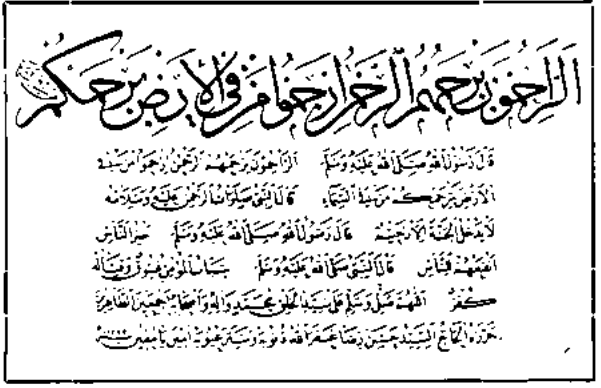 الراحمون يرحمهم الرحمن ارحموا من في الارض يرحمكم
قال رسول الله صلى الله عليه وسلم الراحمون يرحمهم الرحمن ارحموا من في
الارض يرحمكم من في السماء قال النبي صلوات الرحمن عليه وسلامه
لا يدخل الجنة الا رحيم قال رسول الله صلى الله عليه وسلم خير الناس
انفعهم للناس قال النبي صلى الله عليه وسلم سباب المؤمن فسوق وقتاله
كفر اللهم صل وسلم على سيد الخلق محمد واله واصحابه اجمعين الطاهرين
حرره الحاج السيد حسين رضا غفر الله ذنوبه وستر عيوبه امين